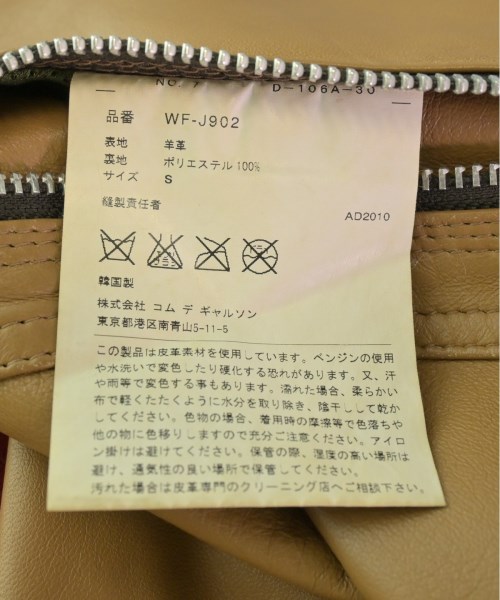 NO. 7 D-106A-30
品番 WF-J902
表地 羊革
裏地 ポリエステル100%
サイズ S
縫製責任者
AD2010
韓国製
株式会社 コム デ ギャルソン
東京都港区南青山5-11-5
この製品は皮革素材を使用しています。ベンジンの使用
や水洗いで変色したり硬化する恐れがあります。又、汗
や雨等で変色する事もあります。濡れた場合、柔らかい
布で軽くたたくように水分を取り除き、陰干しして乾か
してください。色物の場合、着用時の摩擦等で色落ちや
他の物に色移りしますので充分ご注意ください。アイロ
ン掛けは避けてください。保管の際、湿度の高い場所は
避け、通気性の良い場所で保管してください。
汚れた場合は皮革専門のクリーニング店へご相談下さい。